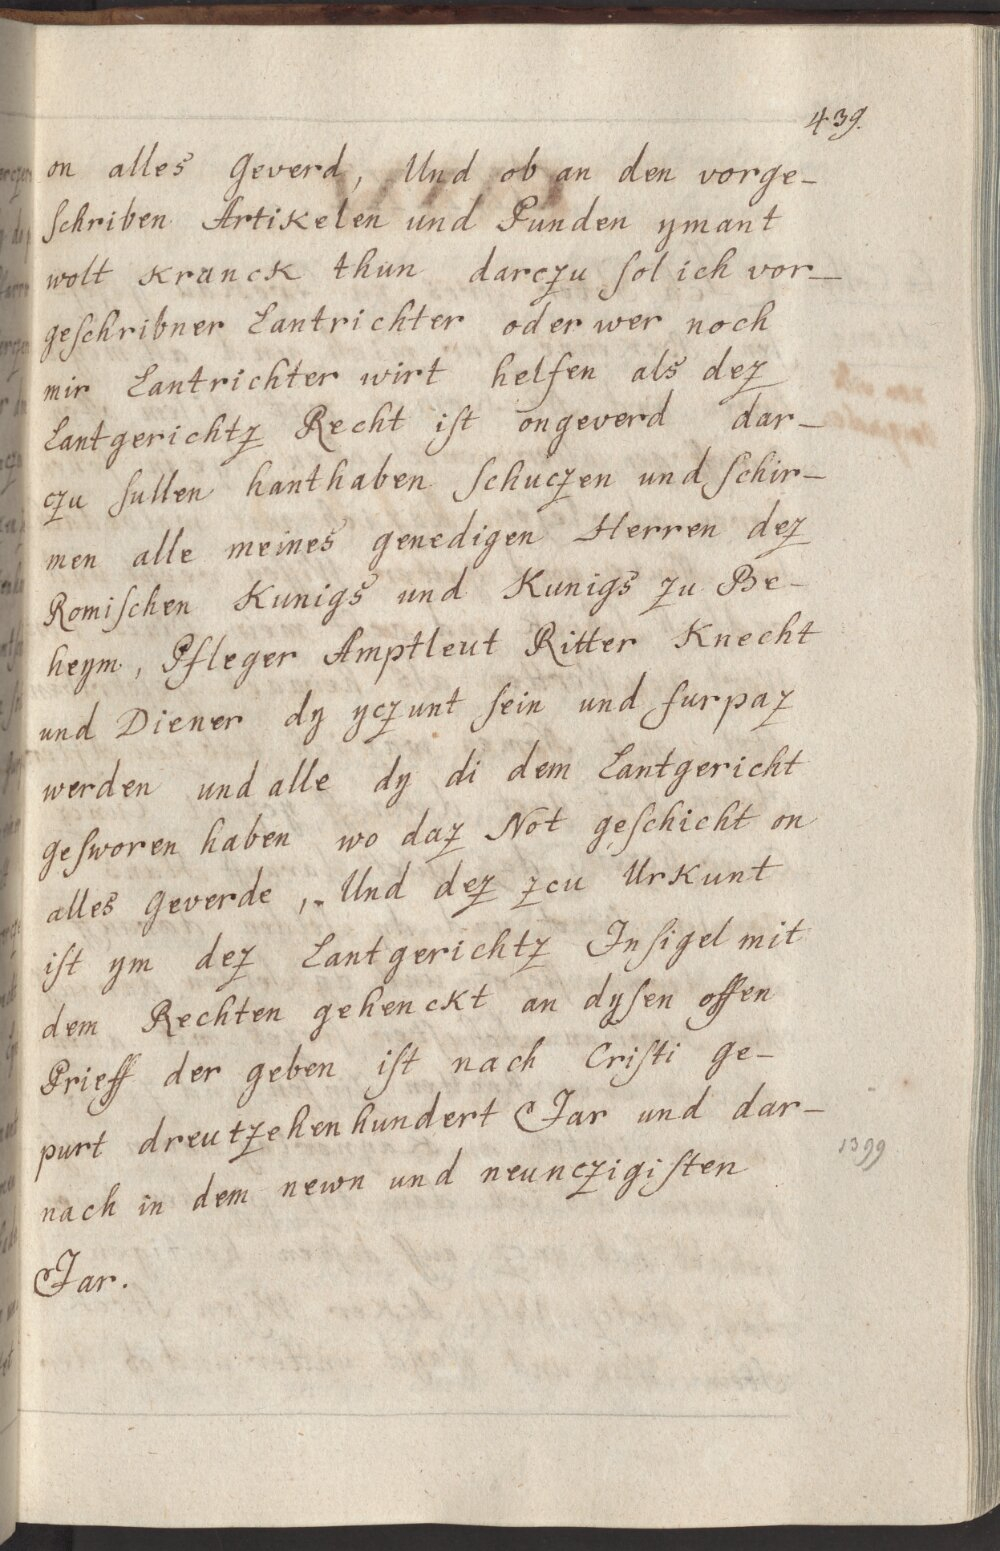 439.
on alles Geverd, Und ob an den vorge-
ſchriben Artikelen und Punden ymant
wolt kranck thun darczu ſol ich vor-
geſchribner Lantrichter oder wer noch
mir Lantrichter wirt helfen als dez
Lantgerichtz Recht iſt ongeverd dar-
czu ſullen hanthaben ſchuczen und ſchir-
men alle meines genedigen Herren dez
Romiſchen Kunigs und Kunigs zu Be-
heym, Pfleger Amptleut Ritter Knecht
und Diener dy yczunt ſein und furpaz
werden und alle dy di dem Lantgericht
geſworen haben wo daz Not geſchicht on
alles Geverde, Und dez zcu Urkunt
iſt ym dez Lantgerichtz Inſigel mit
dem Rechten gehenckt an dyſen offen
Prieff der geben iſt nach Criſti ge-
purt dreutzehenhundert Jar und dar-
1399
nach in dem newn und neunczigiſten
Jar.